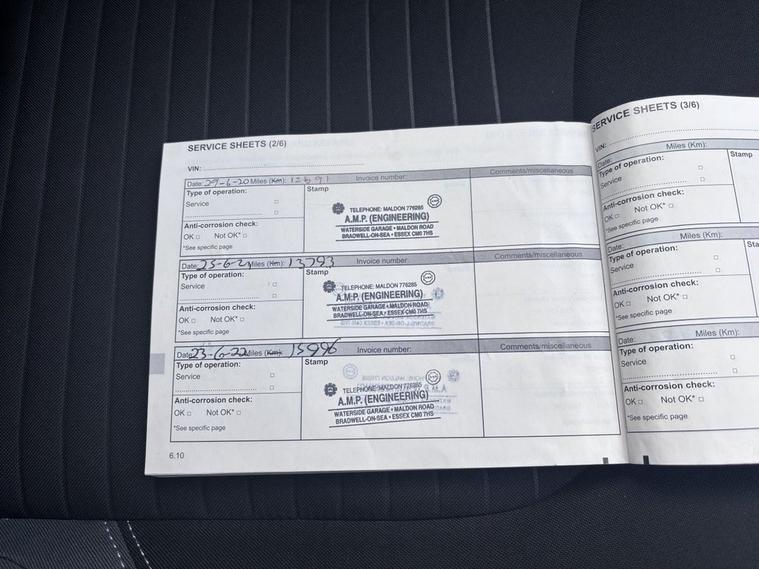 SERVICE SHEETS (2/6)
VIN:
Date: 29-6-20 Miles (Km): 12591 Invoice number: Comments/miscellaneous
Type of operation:
Service
Anti-corrosion check:
OK Not OK*
*See specific page
Stamp
TELEPHONE: MALDON 776285
A.M.P. (ENGINEERING)
WATERSIDE GARAGE • MALDON ROAD
BRADWELL-ON-SEA • ESSEX CM0 7HS
Date: 23-6-21 Miles (Km): 13793 Invoice number: Comments/miscellaneous
Type of operation:
Service
Anti-corrosion check:
OK Not OK*
*See specific page
Stamp
TELEPHONE: MALDON 776285
A.M.P. (ENGINEERING)
WATERSIDE GARAGE • MALDON ROAD
BRADWELL-ON-SEA • ESSEX CM0 7HS
Date: 23-6-22 Miles (Km): 15996 Invoice number: Comments/miscellaneous
Type of operation:
Service
Anti-corrosion check:
OK Not OK*
*See specific page
Stamp
TELEPHONE: MALDON 776285
A.M.P. (ENGINEERING)
WATERSIDE GARAGE • MALDON ROAD
BRADWELL-ON-SEA • ESSEX CM0 7HS
6.10
SERVICE SHEETS (3/6)
VIN:
Date: Miles (Km):
Type of operation:
Service
Anti-corrosion check:
OK Not OK*
*See specific page
Stamp
Date: Miles (Km):
Type of operation:
Service
Anti-corrosion check:
OK Not OK*
*See specific page
Sta
Date: Miles (Km):
Type of operation:
Service
Anti-corrosion check:
OK Not OK*
*See specific page